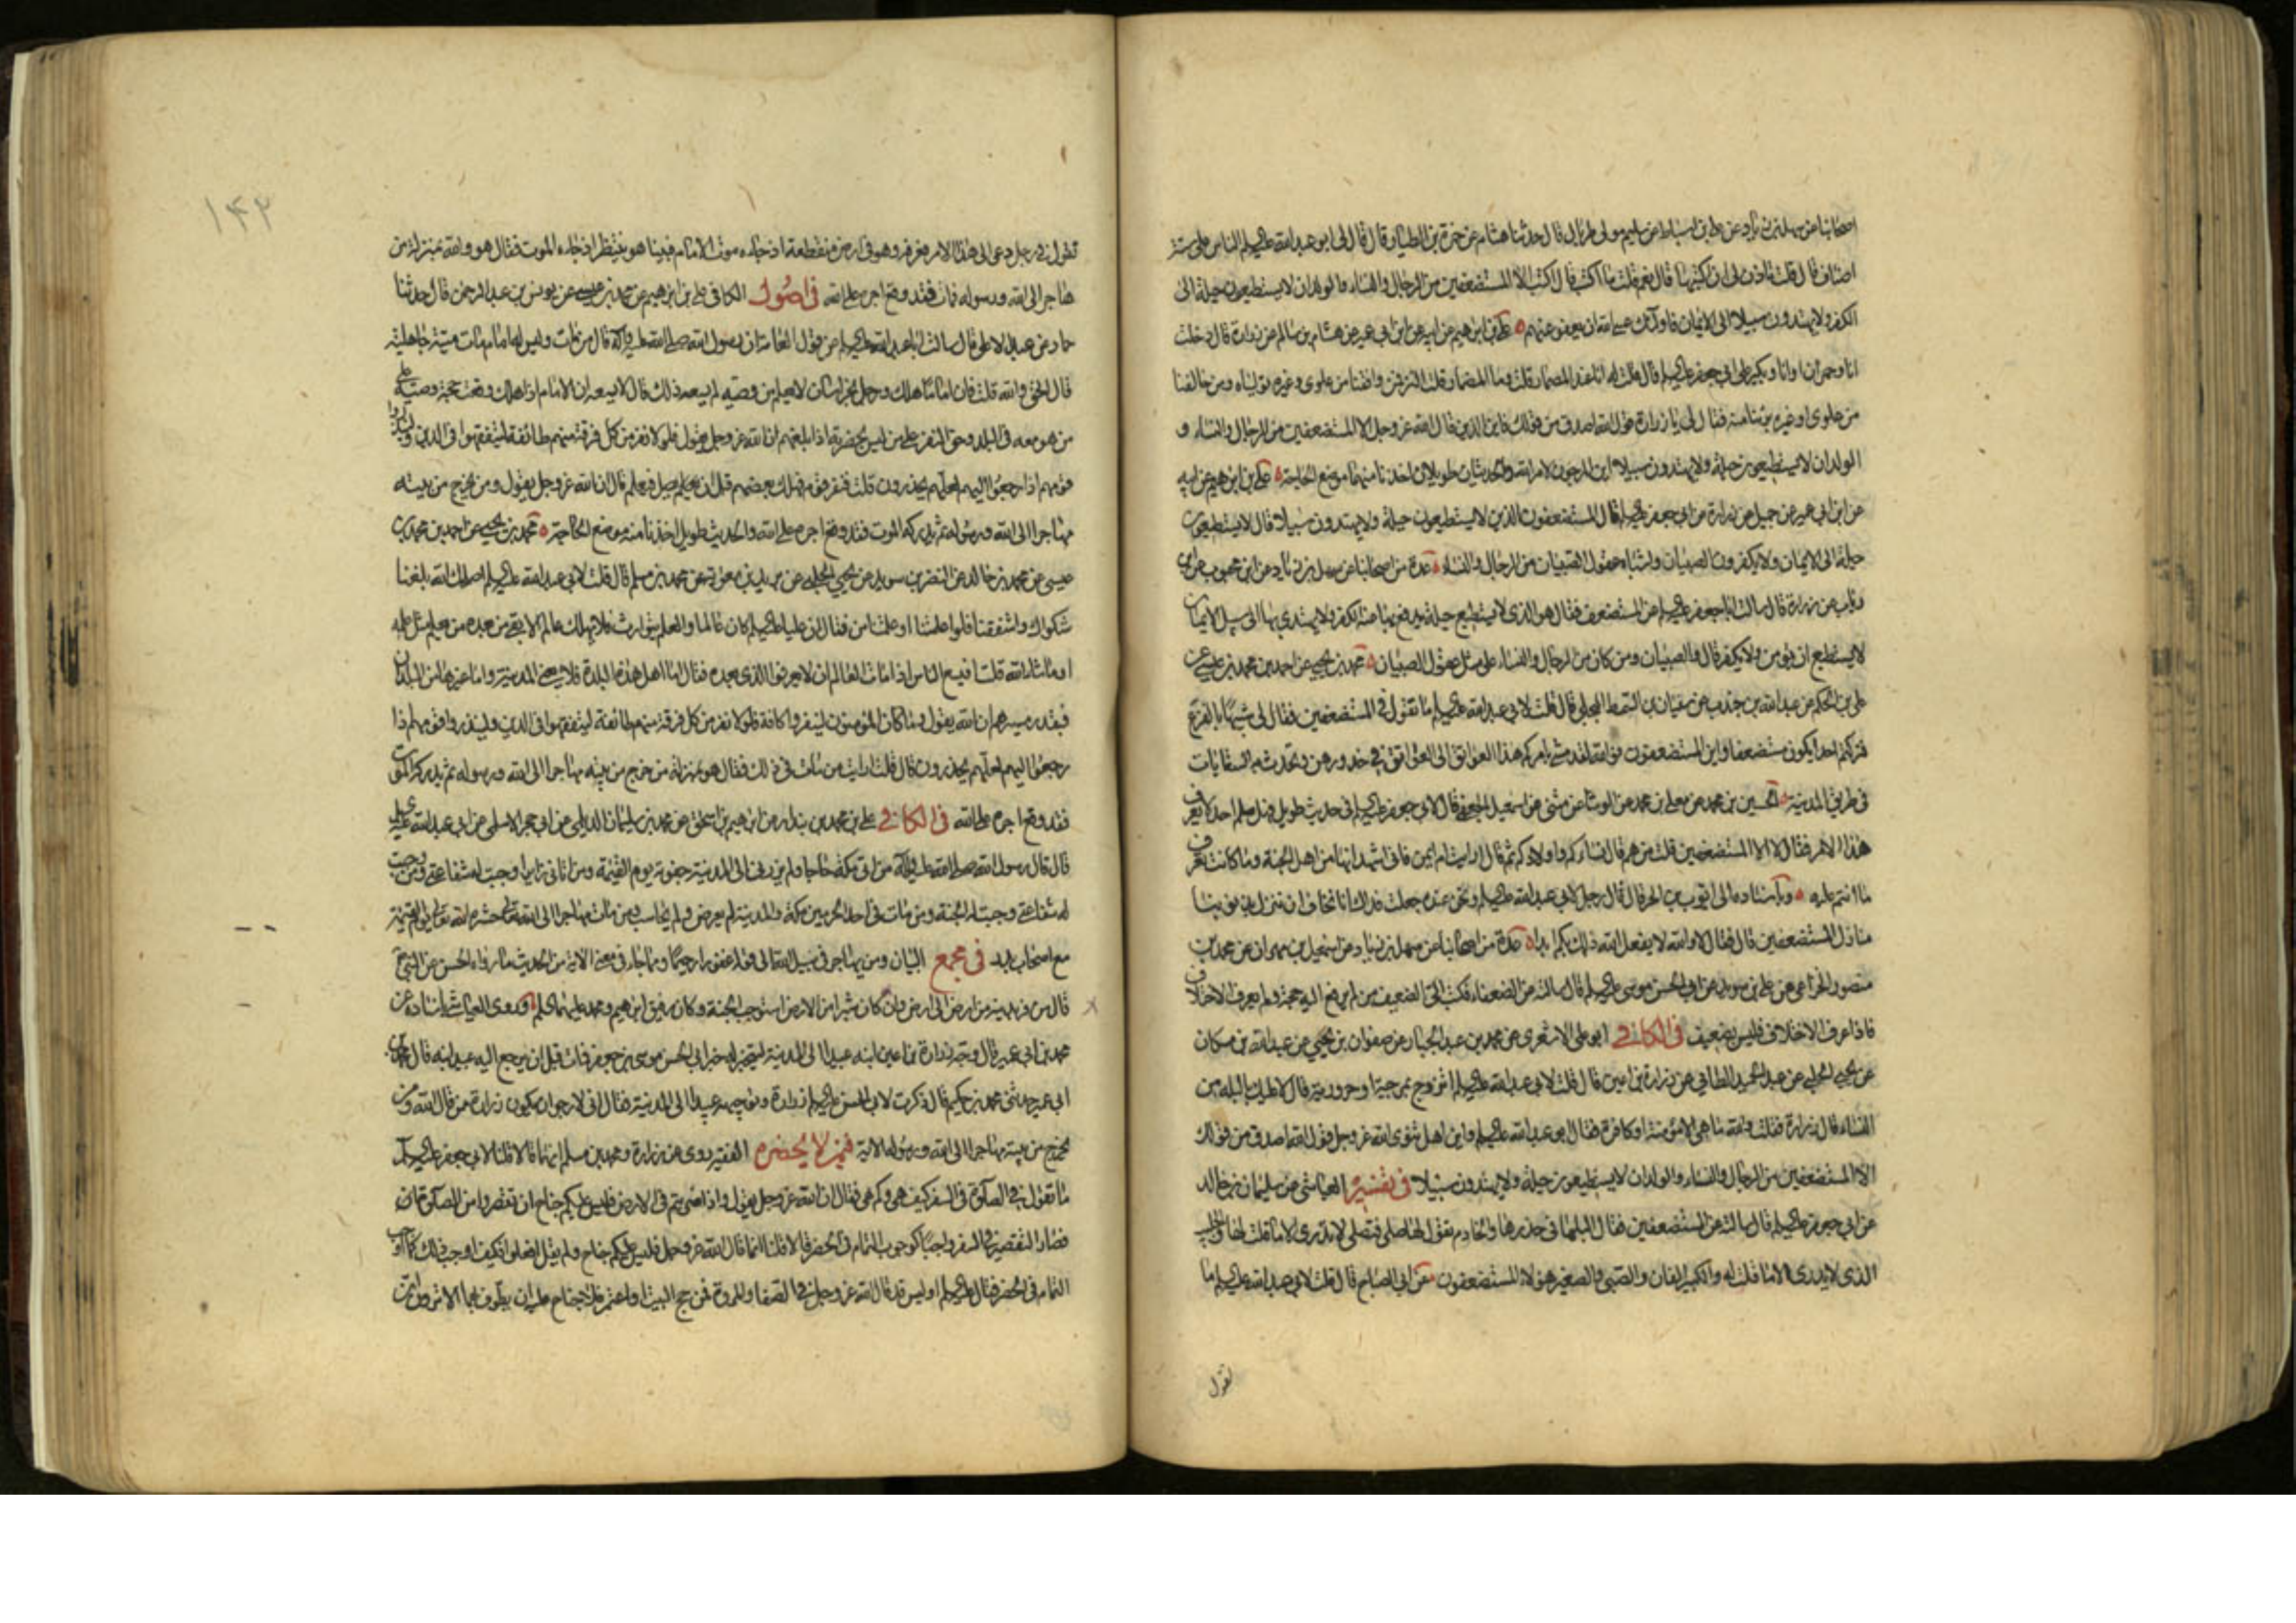 اصحابنا عن سهل بن زياد عن علي بن اسباط عن سليم مولى طربال قال حدثنا هشام عن حمزة بن الطيار قال قال لي ابو عبد الله عليه السلم الناس على ستة
اصناف قال قلت تأذن لي ان اكتبها قال نعم قلت ما اكتب قال اكتب الا المستضعفين من الرجال والنساء والولدان لا يستطيعون حيلة الى
الكفر ولا يهتدون سبيلا الى الايمان فاولئك عسى الله ان يعفو عنهم علي بن ابرهيم عن ابيه عن ابن ابي عمير عن هشام بن سالم عن زرارة قال دخلت
انا وحمران او انا وبكير على ابي جعفر عليه السلم قال قلت له انا نمد المطمار قلت وما المطمار قلت التر فمن وافقنا من علوي وغيره توليناه ومن خالفنا
من علوي او غيره برئنا منه فقال لي يا زرارة قول الله اصدق من قولك فاين الذين قال الله عز وجل الا المستضعفين من الرجال والنساء و
الولدان لا يستطيعون حيلة ولا يهتدون سبيلا اين المرجون لامر الله والحديثان طويلان اخذنا منهما موضع الحاجة علي بن ابرهيم عن ابيه
عن ابن ابي عمير عن جميل عن زرارة عن ابي جعفر عليه السلم قال المستضعفون الذين لا يستطيعون حيلة ولا يهتدون سبيلا قال لا يستطيعون
حيلة الى الايمان ولا يكفرون الصبيان واشباه عقول الصبيان من الرجال والنساء عدة من اصحابنا عن سهل بن زياد عن ابن محبوب عن ابن
رئاب عن زرارة قال سالت ابا جعفر عليه السلم عن المستضعف فقال هو الذي لا يستطيع حيلة يدفع بها عنه الكفر ولا يهتدي بها الى سبيل الايمان
لا يستطيع ان يؤمن ولا يكفر قال والصبيان ومن كان من الرجال والنساء على مثل عقول الصبيان محمد بن يحيى عن احمد بن محمد بن عيسى عن
علي بن الحكم عن عبد الله بن جندب عن سفيان بن السمط البجلي قال قلت لابي عبد الله عليه السلم ما تقول في المستضعفين فقال لي شبيها بالفزع
فتركتم احدا يكون مستضعفا واين المستضعفون فوالله لقد مشى بامركم هذا العواتق الى العواتق في خدورهن وتحدث به السقايات
في طريق المدينة الحسين بن محمد عن معلى بن محمد عن الوشا عن مثنى عن اسمعيل الجعفي قال لابي جعفر عليه السلم في حديث طويل فهل سلم احد لا يعرف
هذا الامر فقال لا الا المستضعفين قلت من هم قال نساءكم واولادكم ثم قال ارايت ام ايمن فاني اشهد انها من اهل الجنة وما كانت تعرف
ما انتم عليه وباسناده الى ايوب بن الحر قال قال رجل لابي عبد الله عليه السلم ونحن عنده جعلت فداك انا نخاف ان ننزل بذنوبنا
منازل المستضعفين قال فقال لا والله لا يفعل الله ذلك بكم ابدا عدة من اصحابنا عن سهل بن زياد عن اسمعيل بن مهران عن محمد بن
منصور الخزاعي عن علي بن سويد عن ابي الحسن موسى عليه السلم قال سالته عن الضعفاء فكتب الى الضعيف من لم يرفع اليه حجة ولم يعرف الاختلاف
فاذا عرف الاختلاف فليس بضعيف في الكافي ابو علي الاشعري عن محمد بن عبد الجبار عن صفوان بن يحيى عن عبد الله بن مسكان
عن يحيى الحلبي عن عبد الحميد الطائي عن زرارة بن اعين قال قلت لابي عبد الله عليه السلم اتزوج بمرجية او حرورية قال لا عليك بالبله من
النساء قال زرارة فقلت والله ما هي الا مؤمنة او كافرة فقال ابو عبد الله عليه السلم واين اهل ثنوى الله عز وجل قول الله اصدق من قولك
الا المستضعفين من الرجال والنساء والولدان لا يستطيعون حيلة ولا يهتدون سبيلا في تفسير العياشي عن سليمان بن خالد
عن ابي جعفر عليه السلم قال سالته عن المستضعفين فقال البلهاء في خدرها والخادم تقول لها صلي فتصلي لا تدري الا ما قلت لها والجليب
الذي لا يدري الا ما قلت له والكبير الفان والصبي والصغير هؤلاء المستضعفون عن ابي الصباح قال قلت لابي عبد الله عليه السلم ما
تقول
١٤٢
تقول في رجل دعي الى هذا الامر فعرفه وهو في ارض منقطعة اذ جاءه موت الامام فبينا هو ينتظر اذ جاءه الموت فقال هو والله بمنزلة من
هاجر الى الله ورسوله فمات فقد وقع اجره على الله في اصول الكافي علي بن ابرهيم عن محمد بن عيسى عن يونس بن عبد الرحمن قال حدثنا
حماد عن عبد الاعلى قال سالت ابا عبد الله عليه السلم عن قول العامة ان رسول الله صلى الله عليه وآله قال من مات وليس له امام مات ميتة جاهلية
قال الحق والله قلت فان اماما هلك ورجل بخراسان لا يعلم من وصيه لم يسعه ذلك قال لا يسعه ان الامام اذا هلك وقعت حجة وصيه على
من هو معه في البلد وحق النفر على من ليس بحضرته اذا بلغهم ان الله عز وجل يقول فلولا نفر من كل فرقة منهم طائفة ليتفقهوا في الدين ولينذروا
قومهم اذا رجعوا اليهم لعلهم يحذرون قلت فنفر قوم فهلك بعضهم قبل ان يصل فيعلم قال ان الله عز وجل يقول ومن يخرج من بيته
مهاجرا الى الله ورسوله ثم يدركه الموت فقد وقع اجره على الله والحديث طويل اخذنا منه موضع الحاجة محمد بن يحيى عن احمد بن محمد بن
عيسى عن محمد بن خالد عن النضر بن سويد عن يحيى الحلبي عن بريد بن معوية عن محمد بن مسلم قال قلت لابي عبد الله عليه السلم اصلحك الله بلغنا
شكواك واشفقنا فلو اعلمتنا او علمنا من فقال ان عليا عليه السلم كان عالما والعلم يتوارث فلا يهلك عالم الا بقي من بعده من يعلم مثل علمه
او ما شاء الله قلت افيسع الناس اذا مات العالم ان لا يعرفوا الذي بعده فقال اما اهل هذه البلدة فلا يعني المدينة واما غيرها من البلدان
فبقدر مسيرهم ان الله يقول وما كان المؤمنون لينفروا كافة فلولا نفر من كل فرقة منهم طائفة ليتفقهوا في الدين ولينذروا قومهم اذا
رجعوا اليهم لعلهم يحذرون قال قلت ارايت من مات في ذلك فقال هو بمنزلة من خرج من بيته مهاجرا الى الله ورسوله ثم يدركه الموت
فقد وقع اجره على الله في الكافي علي بن محمد بن بندار عن ابرهيم بن اسحق عن محمد بن سليمان الديلمي عن ابي حجر الاسلمي عن ابي عبد الله عليه
قال قال رسول الله صلى الله عليه وآله من اتى مكة حاجا ولم يزرني الى المدينة جفوته يوم القيمة ومن اتاني زايرا وجبت له شفاعتي ومن وجبت
له شفاعتي وجبت له الجنة ومن مات في احد الحرمين مكة والمدينة لم يعرض ولم يحاسب ومن مات مهاجرا الى الله تعالى حشره الله تعالى يوم القيمة
مع اصحاب بدر في مجمع البيان ومن يهاجر في سبيل الله الى قوله غفورا رحيما ومما جاء في معنى الاية من الحديث ما رواه الحسن عن النبي
قال من فر بدينه من ارض الى ارض وان كان شبرا من الارض استوجب الجنة وكان رفيق ابرهيم ومحمد عليهما السلم وروى العياشي باسناده عن
محمد بن ابي عمير قال وجه زرارة بن اعين ابنه عبيدا الى المدينة ليستخبر له خبر ابي الحسن موسى بن جعفر فمات قبل ان يرجع اليه عبيد ابنه قال محمد بن
ابي عمير حدثني محمد بن حكيم قال ذكرت لابي الحسن عليه السلم زرارة وتوجيهه عبيدا الى المدينة فقال اني لارجو ان يكون زرارة ممن قال الله ومن
يخرج من بيته مهاجرا الى الله ورسوله الاية فيمن لا يحضره الفقيه روى عن زرارة ومحمد بن مسلم انهما قالا قلنا لابي جعفر عليه السلم
ما تقول في الصلوة في السفر كيف هي وكم هي فقال ان الله عز وجل يقول واذا ضربتم في الارض فليس عليكم جناح ان تقصروا من الصلوة
فصار التقصير في السفر واجبا كوجوب التمام في الحضر قالا قلنا انما قال الله عز وجل فليس عليكم جناح ولم يقل افعلوا فكيف اوجب ذلك كما اوجب
التمام في الحضر فقال عليه السلم اوليس قد قال الله عز وجل في الصفا والمروة فمن حج البيت او اعتمر فلا جناح عليه ان يطوف بهما الا ترون ان